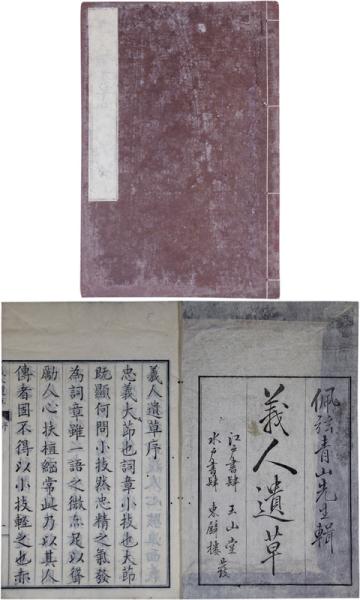 佩弦青山先生輯
義人遺草
江戸書肆 玉山堂
水戸書肆 東壁樓 發
義人遺草序
忠義大節也詞章小技也大節
既顯何問小技然忠精之氣發
為詞章雖一語之微亦足以聳
勵人心扶植綱常此乃以其人
傳者固不得以小技輕之也赤